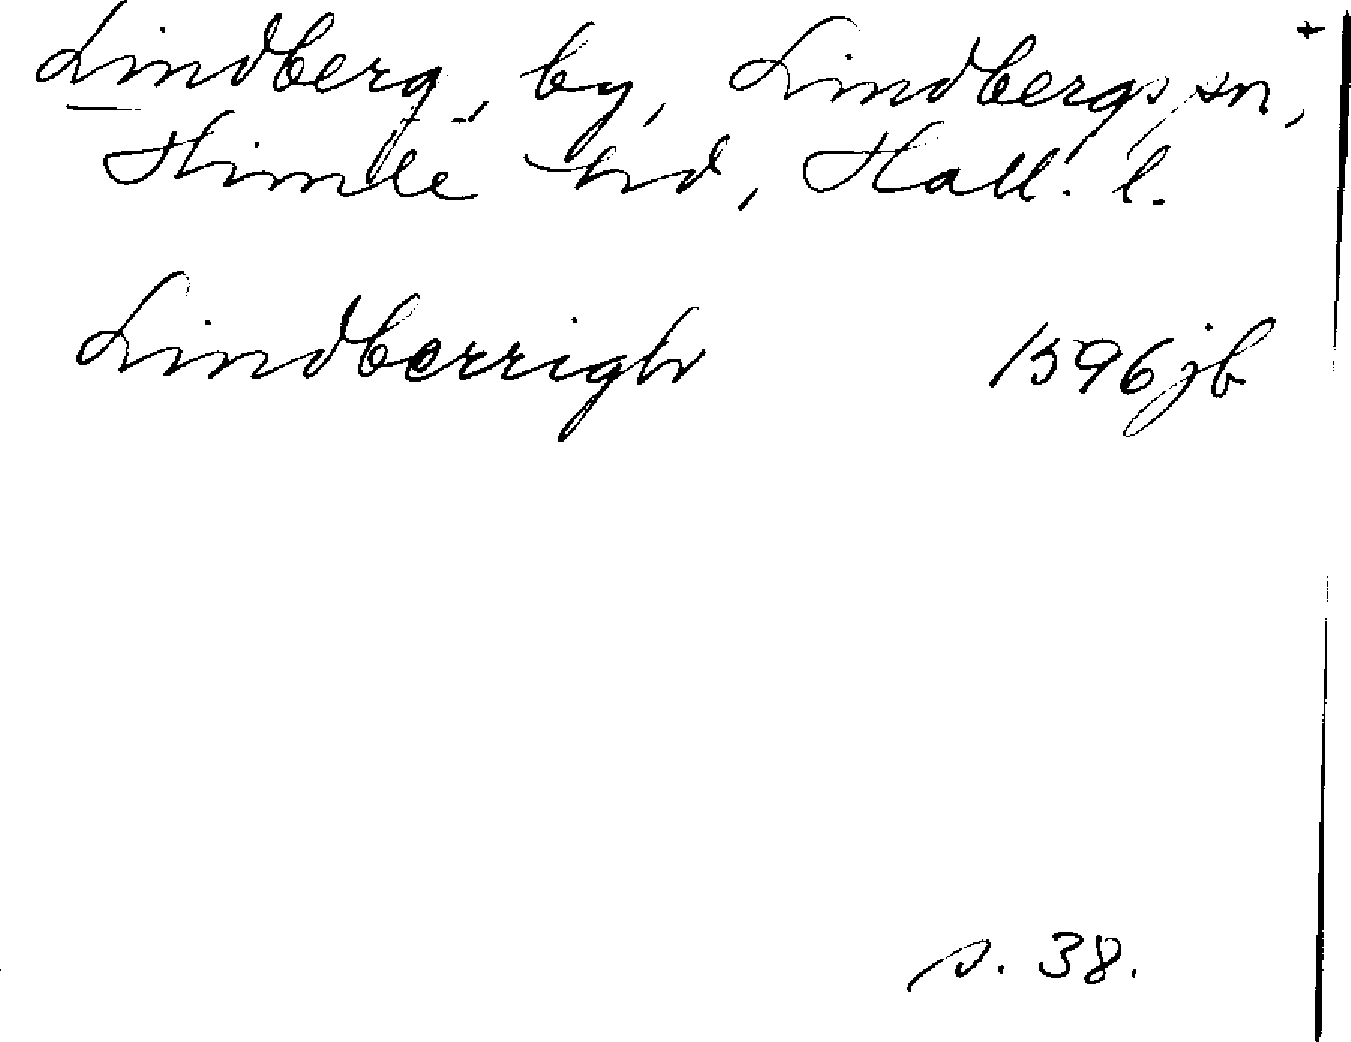 Lindberg, by, Lindbergs sn, +
Himle hd, Hall. l.
Lindberrigh 1596 jb
s. 38.